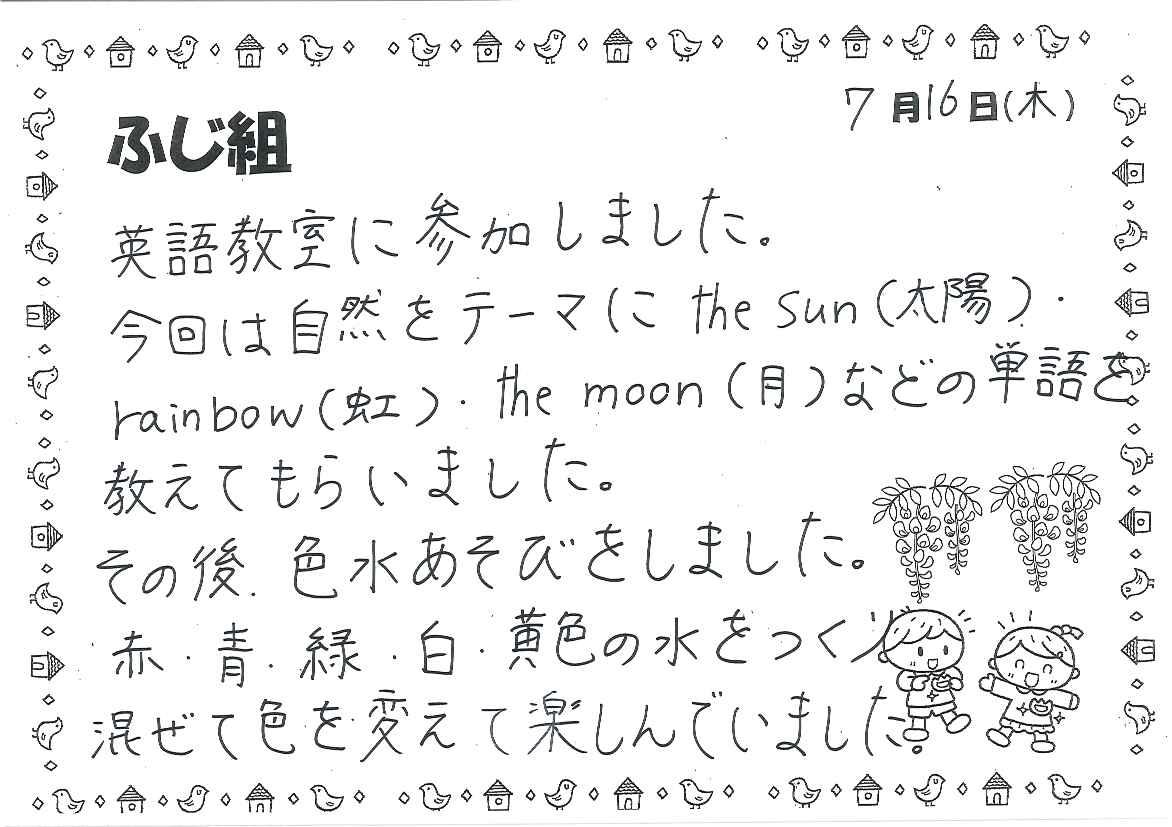 7月16日(木)
ふじ組
英語教室に参加しました。
今回は自然をテーマに the sun(太陽)・
rainbow(虹)・the moon(月)などの単語を
教えてもらいました。
その後、色水あそびをしました。
赤・青・緑・白・黄色の水をつくり
混ぜて色を変えて楽しんでいました。